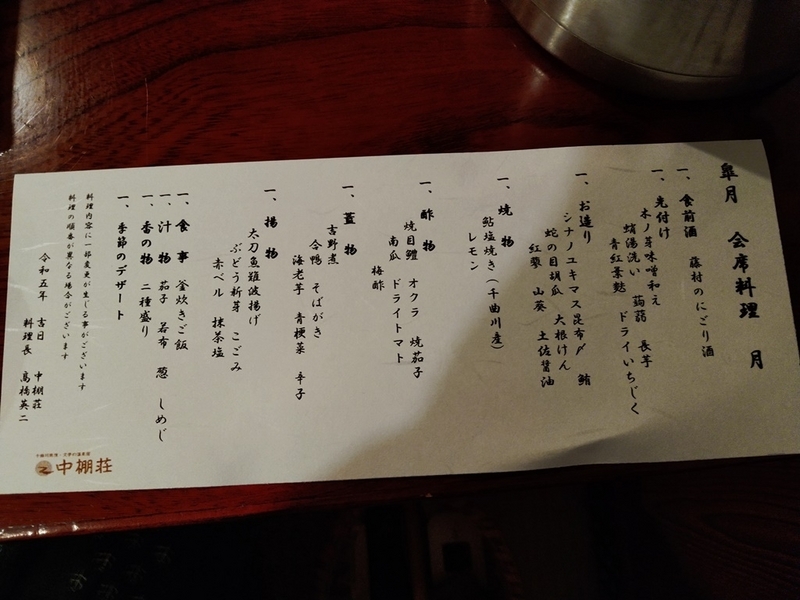 皐月 会席料理 月
一、食前酒 藤村のにごり酒
一、先付け
木ノ芽味噌和え
蛸湯洗い 蒟蒻 長芋
青紅葉麩 ドライいちじく
一、お造り
シナノユキマス昆布〆 鮪
蛇の目胡瓜 大根けん
紅蓼 山葵 土佐醤油
一、焼物
鮎塩焼き(千曲川産)
レモン
一、酢物
焼目鱧 オクラ 焼茄子
南瓜 ドライトマト
梅酢
一、蓋物
吉野煮
合鴨 そばがき
海老芋 青梗菜 辛子
一、揚物
太刀魚難波揚げ
ぶどう新芽 こごみ
赤ベル 抹茶塩
一、食事 釜炊きご飯
一、汁物 茄子 若布 葱 しめじ
一、香の物 二種盛り
一、季節のデザート
料理内容に一部変更が生じる事がございます
料理の順番が異なる場合がございます
令和五年 吉日 中棚荘
料理長 高橋英二
中棚荘